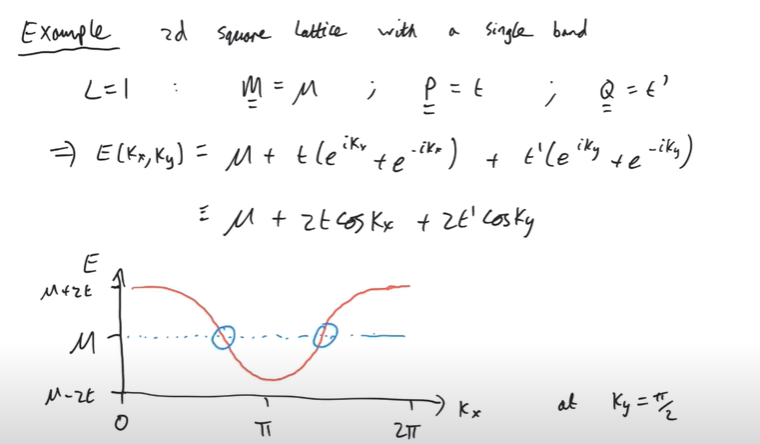 Example 2d square lattice with a single band
L=1 : M = μ ; P = t ; Q = t'
⇒ E(kx,ky) = μ + t(e^{ikx} + e^{-ikx}) + t'(e^{iky} + e^{-iky})
≡ μ + 2t cos kx + 2t' cos ky
E
μ+2t
μ
μ-2t
0 π 2π kx at ky = π/2